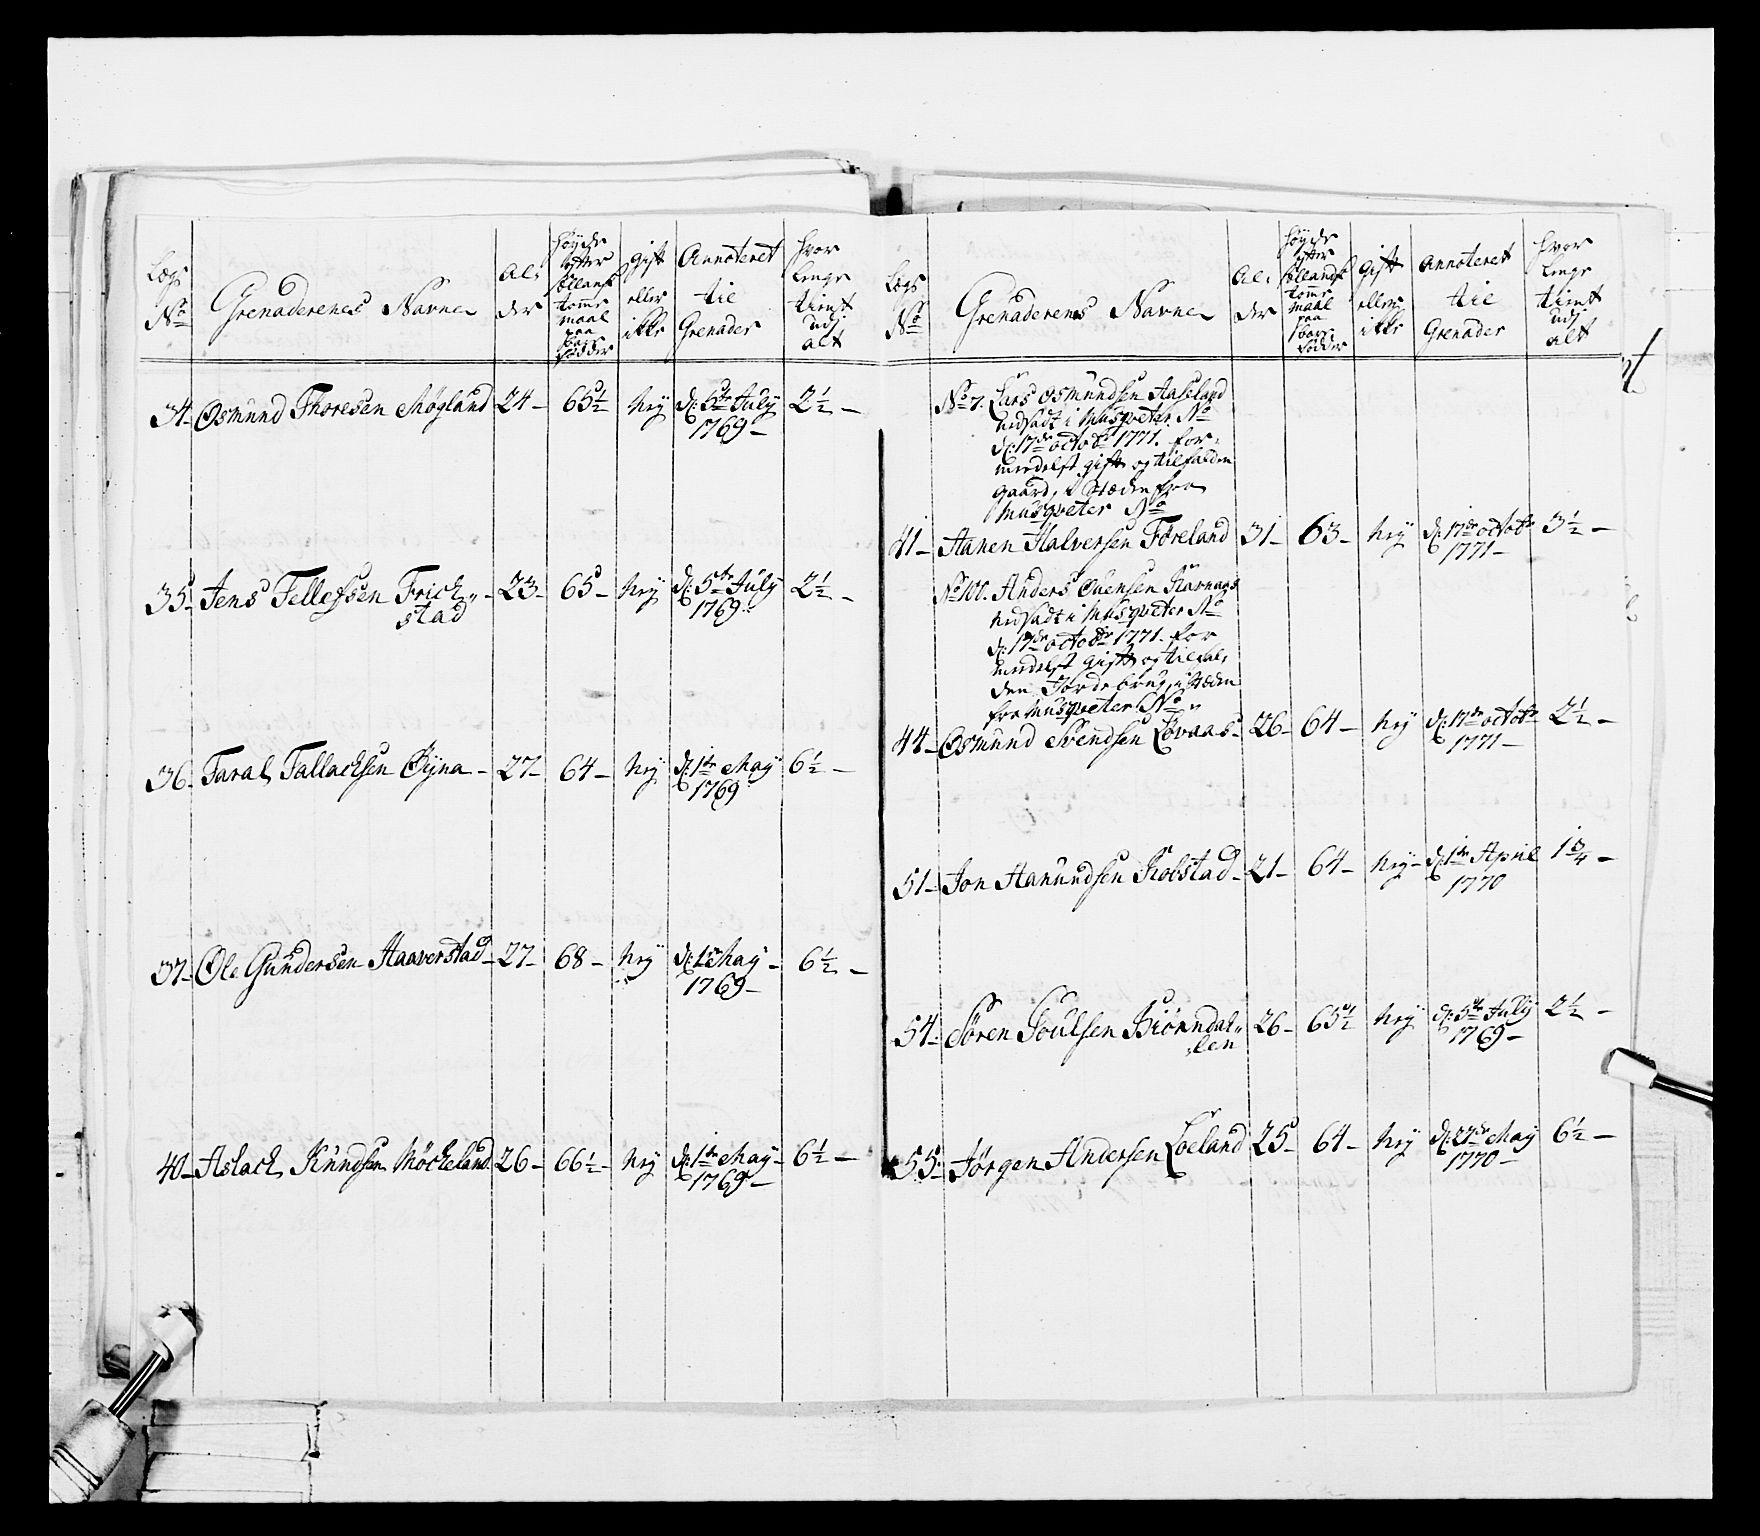 Lægs No
Grenaderenes Navne
Al: der
Høyde efter Sællansk tomme maal paa bare fødder
gift eller ikke
Annoteret til Grenader
hvor lenge tient udj alt
34 Osmund Thoresen Møgland 24 65½ Ney d: 5te July 1769 2½
35 Jens Tellefsen Frick„
stad 23 65 Ney d: 5te July 1769 2½
36 Taral Tallachsen Øyna 27 64 Ney d: 1te May 1769 6½
37 Ole Gundersen Haaverstad 27 68 Ney d: 1te May 1769 6½
40 Aslach Knudsen Möcheland 26 66½ Ney d: 1te May 1769 6½
Lægs No
Grenaderens Navne
Al: der
Høyde efter Sællandsk tomme maal paa bare fødder
gift eller ikke
Annoteret til Grenader
hvor lenge tient udj alt
No 7. Lars Osmundsen Aaseland
udsadt i Musqveter No
d: 17de octobr 1771. for„
medelst gift og tilfalden
gaard, i Stæden fra
Musqveter No
41 Aanen Halversen Føreland 31 63 Ney d: 17de octobr 1771 3½
No 100. Anders Ouensen Ravnaas
udsadt i Musqveter No
d: 17de octobr 1771. for
medelst gift og tilfal„
den Jorde brug, i Stæden
fra Musqveter No
44 Osmund Svendsen Løvaas 26 64 Ney d: 17de octobr 1771 2½
51 Jon Aanundsen Robstad 21 64 Ney d: 1te April 1770 1¾
54 Søren Poulsen Biørndal„
len 26 65½ Ney d: 5te July 1769 2½
55 Jørgen Andersen Loeland 25 64 Ney d: 27de May 1770 6½